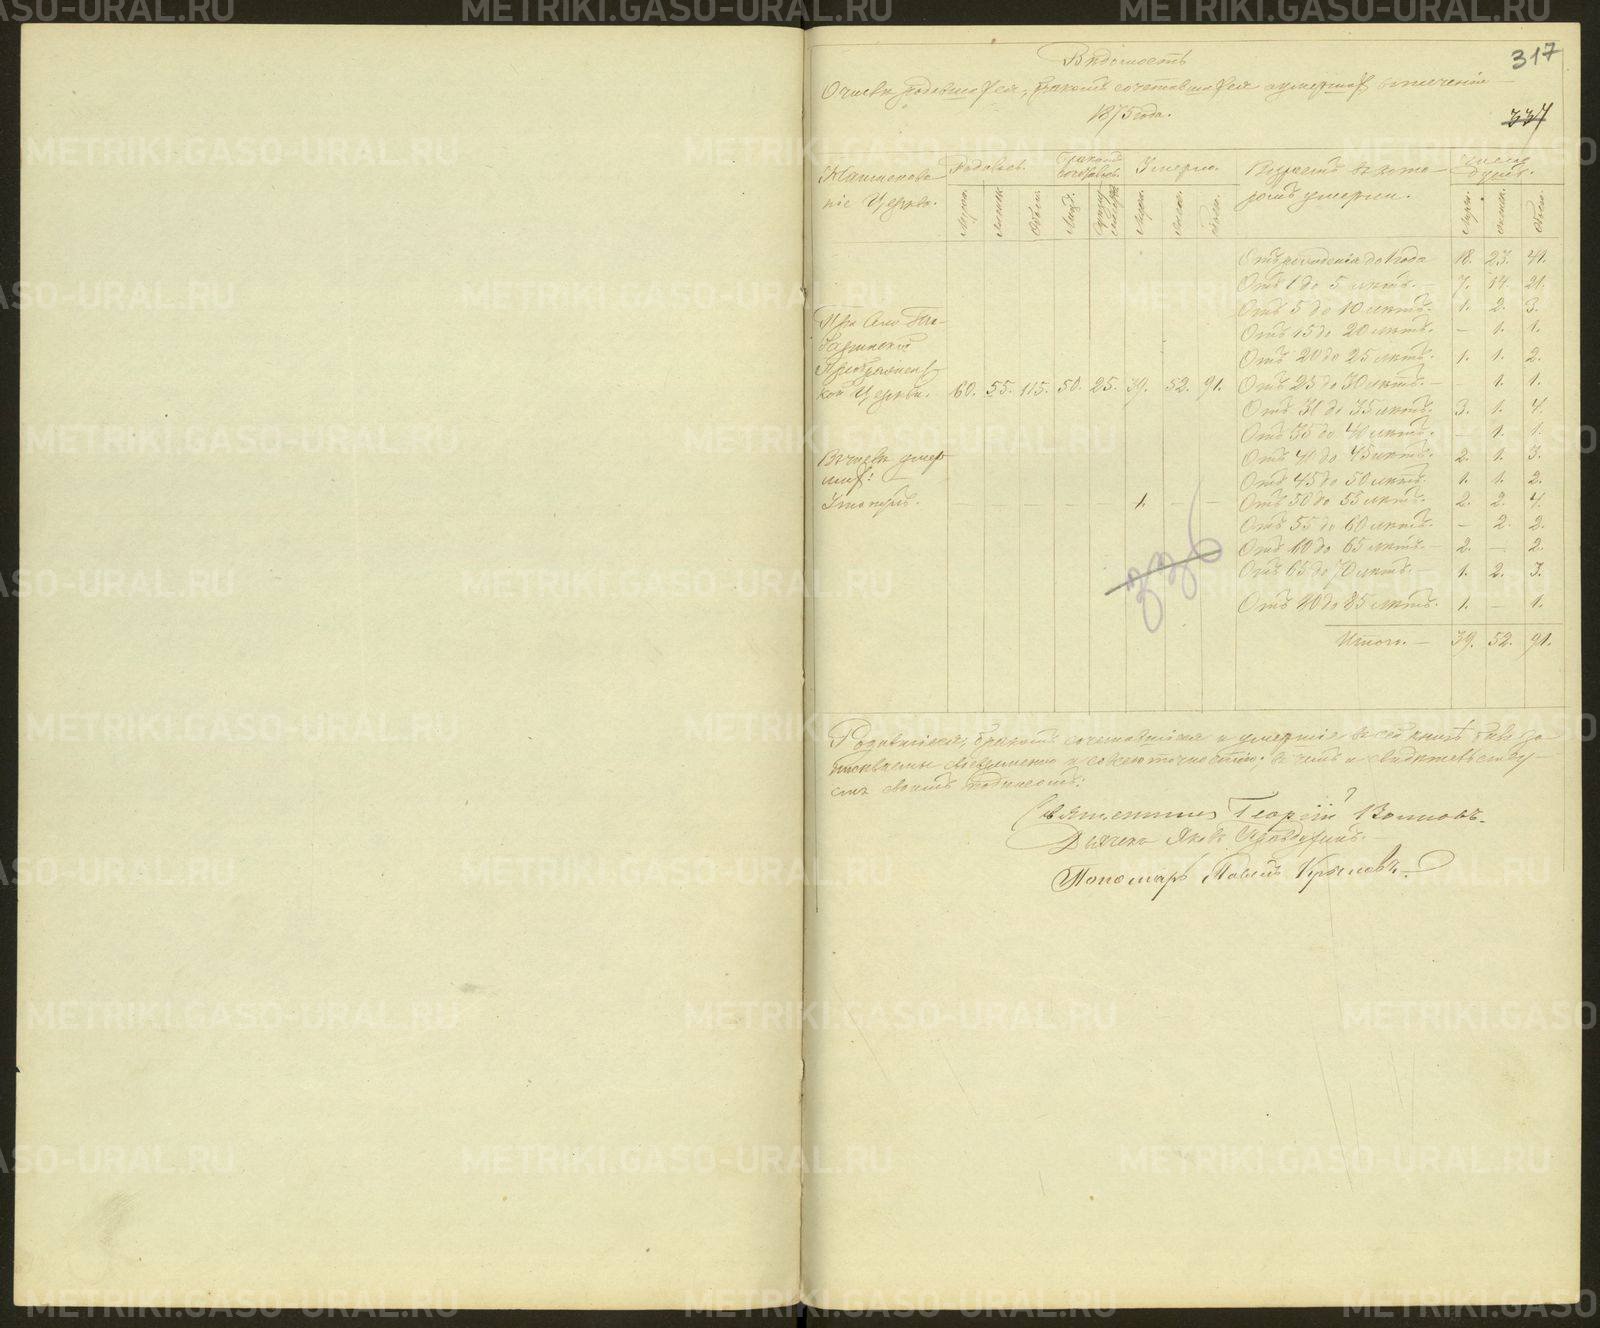 317
Вѣдомость
О числѣ родившихся, бракомъ сочетавшихся и умершихъ въ теченіе
1875 года.
337
Наименова-
ніе Церкви.
Родилось.
Бракомъ
сочеталось.
Умерло.
Возрастъ въ кото-
ромъ умерли.
Число
душъ.
Муж. Женск. Обоего. Муж. Женск. Обоего. Муж. женск. Обоего.
Отъ рожденія до 1 года 18. 23. 41.
Отъ 1 до 5 лѣтъ. — 7. 14. 21.
Отъ 5 до 10 лѣтъ. 1. 2. 3.
Отъ 15 до 20 лѣтъ. — 1. 1.
Отъ 20 до 25 лѣтъ. 1. 1. 2.
При Село-
Преображенс-
кой Церкви. 60. 55. 115. 50. 25. 39. 52. 91. Отъ 25 до 30 лѣтъ. — 1. 1.
Отъ 30 до 35 лѣтъ. 3. 1. 4.
Отъ 35 до 40 лѣтъ. — 1. 1.
Въ числѣ умер-
шихъ:
Отъ 40 до 45 лѣтъ. 2. 1. 3.
Отъ 45 до 50 лѣтъ. 1. 1. 2.
Утонулъ. — — — — — 1. — — Отъ 50 до 55 лѣтъ. 2. 2. 4.
Отъ 55 до 60 лѣтъ. — 2. 2.
Отъ 60 до 65 лѣтъ. — 2. — 2.
Отъ 65 до 70 лѣтъ. — 1. 2. 3.
336
Отъ 80 до 85 лѣтъ. 1. — 1.
Итого. — 39. 52. 91.
Родившіеся, бракомъ сочетавшіеся и умершіе въ сей книгѣ были за-
писываемы своевременно и со всею точностію; въ чемъ и свидѣтельству-
емъ своимъ подписомъ:
Священникъ Георгій
Дьячекъ Яковъ
Пономарь Крыловъ.
METRIKI.GASO-URAL.RU